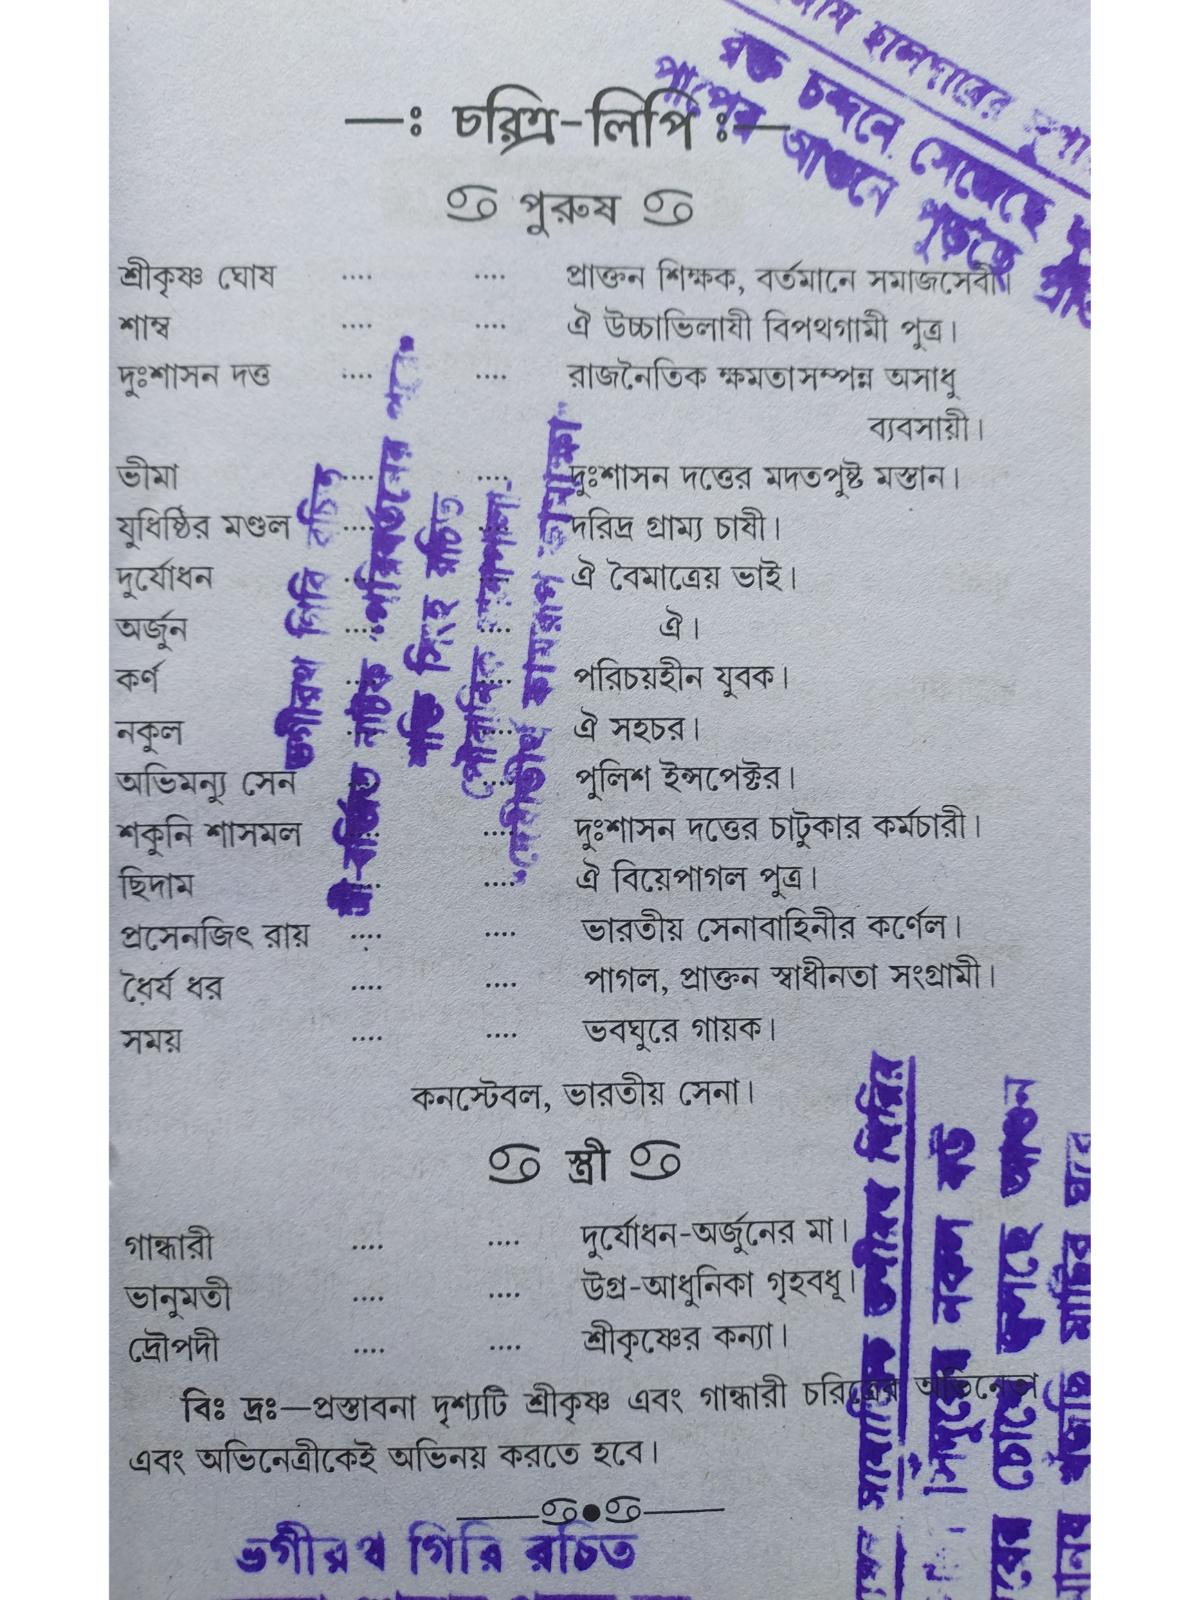 —ঃ চরিত্র-লিপি ঃ—
পুরুষ
শ্রীকৃষ্ণ ঘোষ .... .... প্রাক্তন শিক্ষক, বর্তমানে সমাজসেবী।
শাম্ব .... .... ঐ উচ্চাভিলাষী বিপথগামী পুত্র।
দুঃশাসন দত্ত .... .... রাজনৈতিক ক্ষমতাসম্পন্ন অসাধু
ব্যবসায়ী।
ভীমা .... .... দুঃশাসন দত্তের মদতপুষ্ট মস্তান।
যুধিষ্ঠির মণ্ডল .... .... দরিদ্র গ্রাম্য চাষী।
দুর্যোধন .... .... ঐ বৈমাত্রেয় ভাই।
অর্জুন .... .... ঐ।
কর্ণ .... .... পরিচয়হীন যুবক।
নকুল .... .... ঐ সহচর।
অভিমন্যু সেন .... .... পুলিশ ইন্সপেক্টর।
শকুনি শাসমল .... .... দুঃশাসন দত্তের চাটুকার কর্মচারী।
ছিদাম .... .... ঐ বিয়েপাগল পুত্র।
প্রসেনজিৎ রায় .... .... ভারতীয় সেনাবাহিনীর কর্ণেল।
ধৈর্য ধর .... .... পাগল, প্রাক্তন স্বাধীনতা সংগ্রামী।
সময় .... .... ভবঘুরে গায়ক।
কনস্টেবল, ভারতীয় সেনা।
স্ত্রী
গান্ধারী .... .... দুর্যোধন-অর্জুনের মা।
ভানুমতী .... .... উগ্র-আধুনিকা গৃহবধূ।
দ্রৌপদী .... .... শ্রীকৃষ্ণের কন্যা।
বিঃ দ্রঃ—প্রস্তাবনা দৃশ্যটি শ্রীকৃষ্ণ এবং গান্ধারী চরিত্রের অভিনেতা
এবং অভিনেত্রীকেই অভিনয় করতে হবে।
ভগীরথ গিরি রচিত
হালদারের
রক্ত চন্দনে সেজেছে
পাপের আগুনে পুড়ছে
ভগীরথ গিরি রচিত
নাটক পরিবর্তনের
শক্তি সিংহ রচিত
পৌরাণিক
ভগীরথ গিরির
সিঁদুরের নকল বউ
চোখে জ্বলছে আগুন
মাটির ঘরে